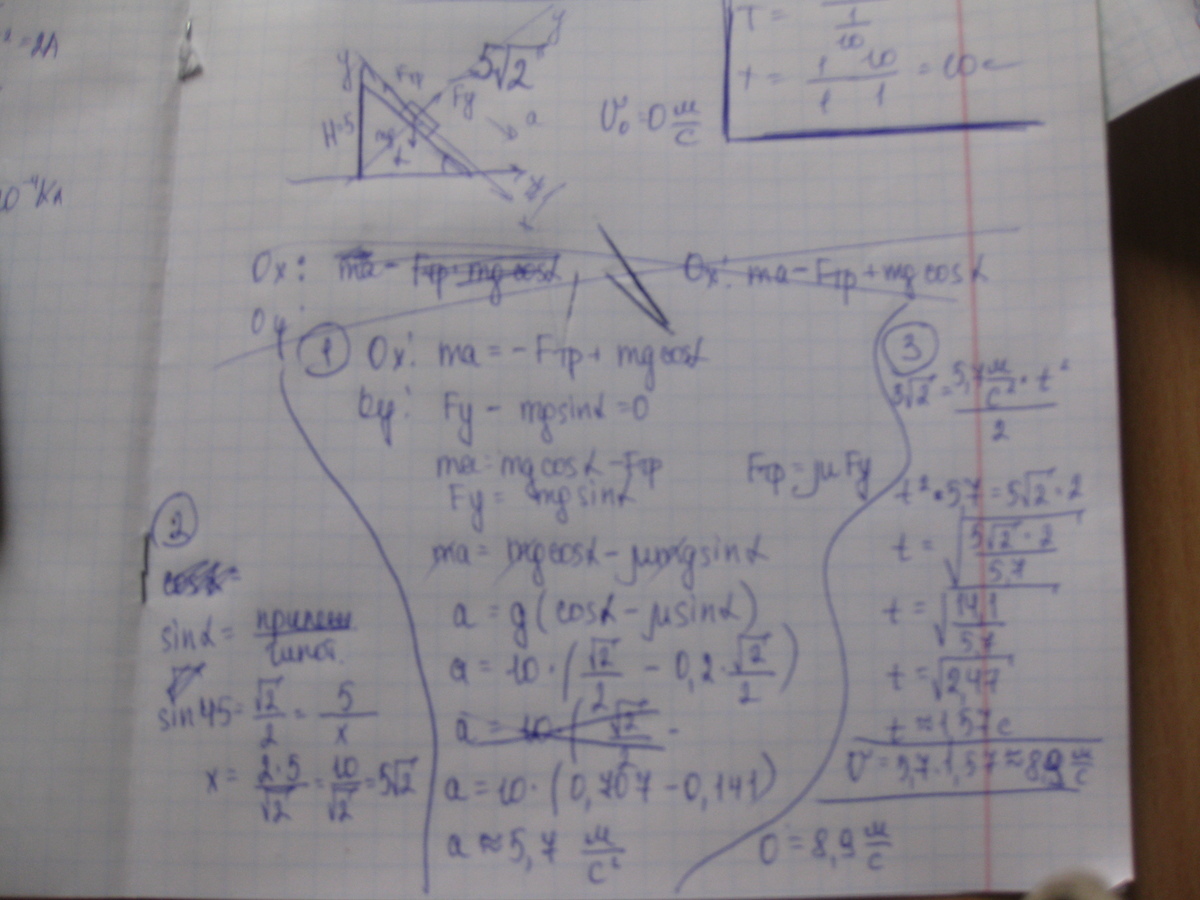 ² = 2А
T = 1/10
t = 1 10 / 1 1 = 10 с
y
5√2
y
Fтр
Fy
a
H=5
mg
α
x
V₀ = 0 м/с
Ox: ma - Fтр + mg cosα
Ox: ma - Fтр + mg cosα
Oy:
① Ox: ma = - Fтр + mg cosα
Oy: Fy - mg sinα = 0
ma = mg cosα - Fтр
Fтр = μFy
Fy = mg sinα
ma = mg cosα - μmg sinα
a = g (cosα - μ sinα)
a = 10 · (√2/2 - 0,2 · √2/2)
a = 10 (√2/2 -
a = 10 · (0,707 - 0,141)
a ≈ 5,7 м/с²
②
cosα =
sinα =
sin 45 = √2/2 = 5/x
x = 2·5/√2 = 10/√2 = 5√2
③
5√2 = 5,7 м/с² · t² / 2
t² · 5,7 = 5√2 · 2
t = √(5√2 · 2 / 5,7)
t = √(14,1 / 5,7)
t = √2,47
t ≈ 1,57 с
V = 5,7 · 1,57 ≈ 8,9 м/с
О = 8,9 м/с